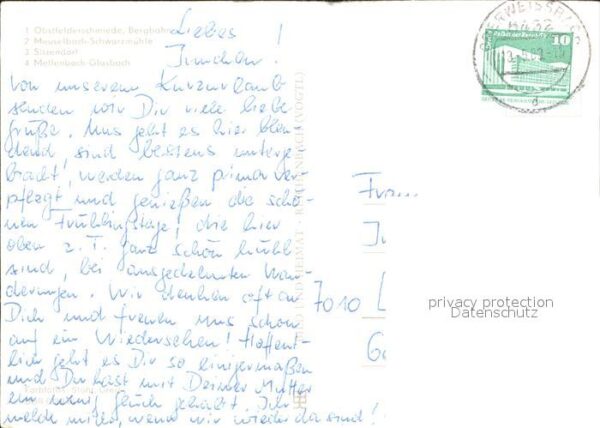 1 Obstfelderschmiede, Bergbahn
2 Meuselbach-Schwarzmühle
3 Sitzendorf
4 Mellenbach-Glasbach
Liebes!
von unserem Kurzurlaub
senden wir Dir viele liebe
Grüße. Uns geht es hier blen
dend, sind bestens unterge
bracht, werden ganz prima ver
pflegt und genießen die schö
nen Frühlingstage, die hier
oben z. T. ganz schön kühl
sind, bei ausgedehnten Wan
derungen. Wir denken oft an
Dich und freuen uns schon
auf ein Wiedersehen! Hoffent
lich geht es Dir so einigermaßen
und Du hast mit Deiner Mutter
ein wenig Glück gehabt. Ich
melde mich, wenn wir wieder da sind!
OBERWEISSBACH
6432
10
Frau...
7010 L
privacy protection
Datenschutz